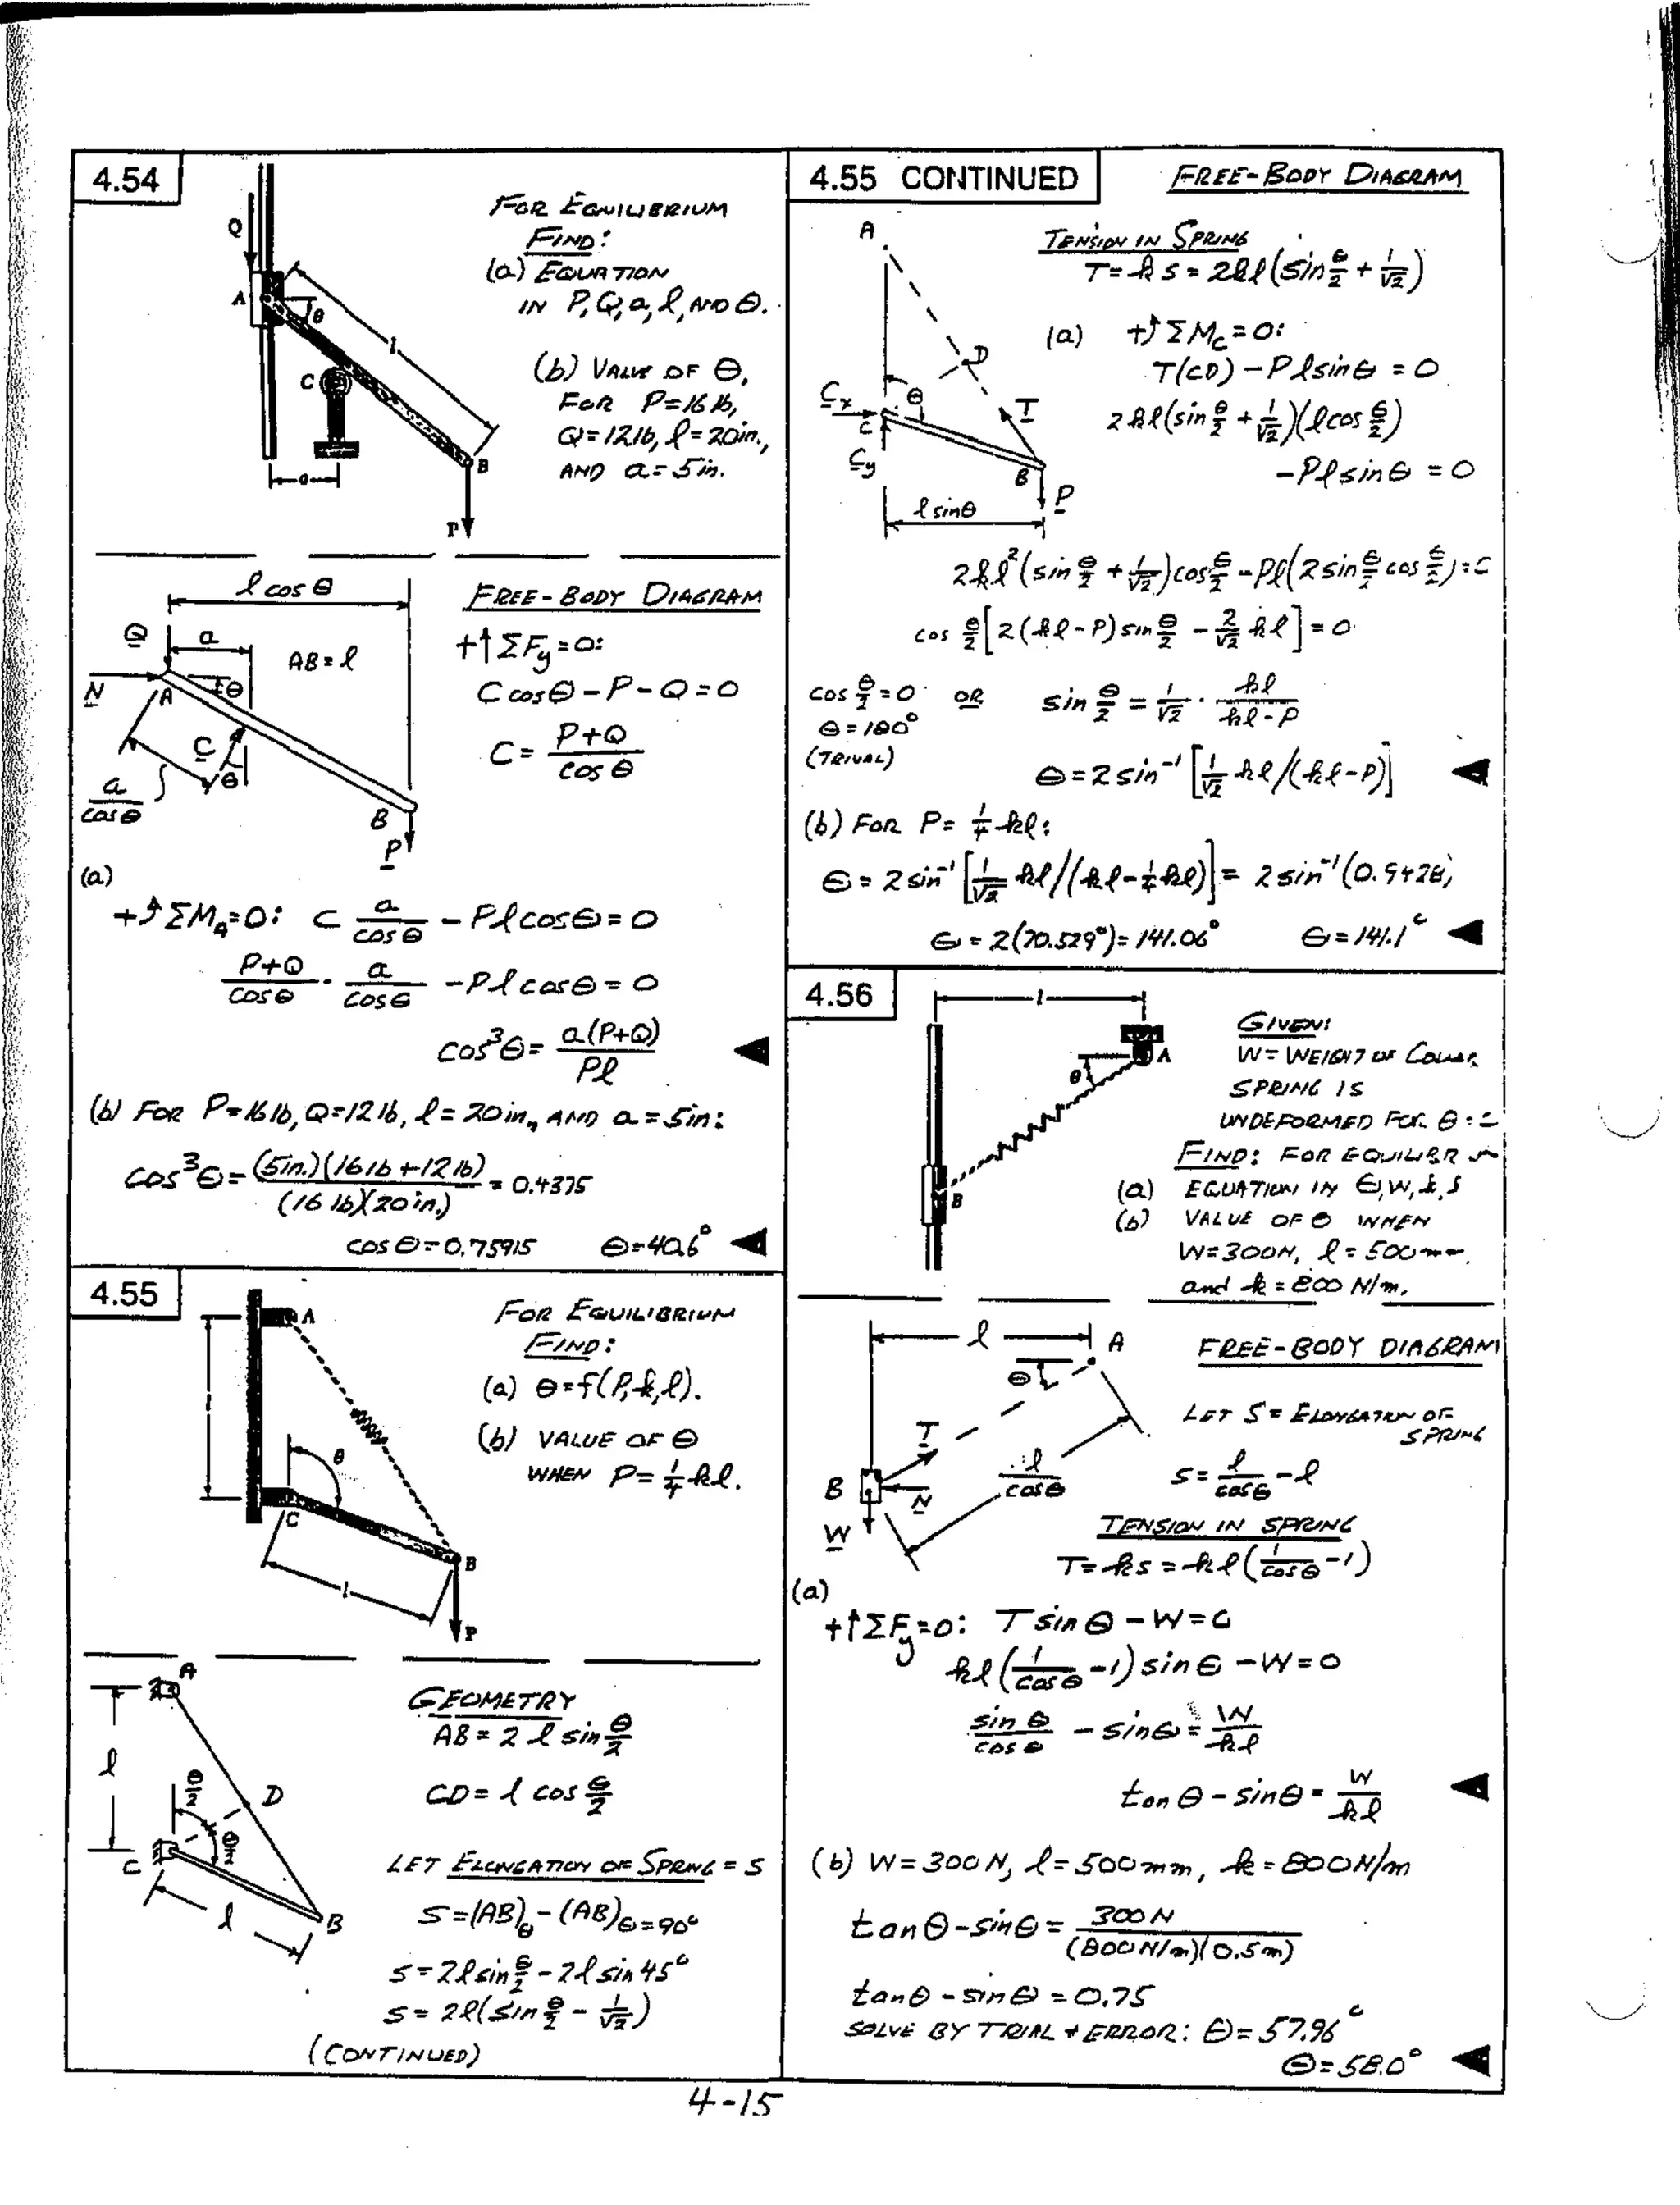 4.54
Q
A
θ
l
C
B
a
P
FOR EQUILIBRIUM
FIND:
(a) EQUATION
IN P, Q, a, l, AND θ.
(b) VALUE OF θ,
FOR P=16 lb,
Q=12 lb, l=20in.,
AND a=5in.
l cos θ
Q
a
AB=l
N
A
θ
C
θ
a/cos θ
B
P
FREE-BODY DIAGRAM
+↑ΣFy=0:
C cos θ - P - Q = 0
C = (P+Q)/cos θ
(a)
+↺ΣM_A=0: C a/cos θ - Pl cos θ = 0
(P+Q)/cos θ · a/cos θ - Pl cos θ = 0
cos³θ = a(P+Q)/Pl
(b) FOR P=16 lb, Q=12 lb, l=20 in., AND a=5in:
cos³θ = (5in.)(16 lb + 12 lb)/(16 lb)(20 in.) = 0.4375
cos θ = 0.75915 θ=40.6°
4.55
A
l
θ
C
B
l
P
FOR EQUILIBRIUM
FIND:
(a) θ=f(P,k,l).
(b) VALUE OF θ
WHEN P=¼kl.
A
l
θ/2
D
θ/2
C
l
B
GEOMETRY
AB = 2 l sin θ/2
CD = l cos θ/2
LET ELONGATION OF SPRING = s
s = (AB)_θ - (AB)_θ=90°
s = 2l sin θ/2 - 2l sin 45°
s = 2l(sin θ/2 - 1/√2)
(CONTINUED)
4.55 CONTINUED
FREE-BODY DIAGRAM
A
D
θ
Cx
C
T
Cy
B
P
l sin θ
TENSION IN SPRING
T = k s = 2kl(sin θ/2 + 1/√2)
(a) +↺ΣM_C=0:
T(CD) - P l sin θ = 0
2kl(sin θ/2 + 1/√2)(l cos θ/2)
- Pl sin θ = 0
2kl²(sin θ/2 + 1/√2)cos θ/2 - Pl(2 sin θ/2 cos θ/2) = 0
cos θ/2 [2(kl-P) sin θ/2 - 2/√2 kl] = 0
cos θ/2 = 0 OR sin θ/2 = 1/√2 · kl/(kl-P)
θ=180°
(TRIVAL)
θ = 2 sin⁻¹[1/√2 kl/(kl-P)]
(b) FOR P = ¼kl:
θ = 2 sin⁻¹[1/√2 kl/(kl-¼kl)] = 2 sin⁻¹(0.9428)
θ = 2(70.529°) = 141.06° θ=141.1°
4.56
l
A
θ
B
GIVEN:
W = WEIGHT OF COLLAR
SPRING IS
UNDEFORMED FOR θ = 0
FIND: FOR EQUILIBR
(a) EQUATION IN θ, W, k, l
(b) VALUE OF θ WHEN
W=300N, l=500mm,
and k=800 N/m.
l
A
θ
T
B
N
l/cos θ
W
FREE-BODY DIAGRAM
LET S = ELONGATION OF
SPRING
s = l/cos θ - l
TENSION IN SPRING
T = ks = kl(1/cos θ - 1)
(a)
+↑ΣFy=0: T sin θ - W = 0
kl(1/cos θ - 1) sin θ - W = 0
sin θ/cos θ - sin θ = W/kl
tan θ - sin θ = W/kl
(b) W=300 N, l=500mm, k=800N/m
tan θ - sin θ = 300 N/(800 N/m)(0.5m)
tan θ - sin θ = 0.75
SOLVE BY TRIAL + ERROR: θ=57.96°
θ=58.0°
4-15